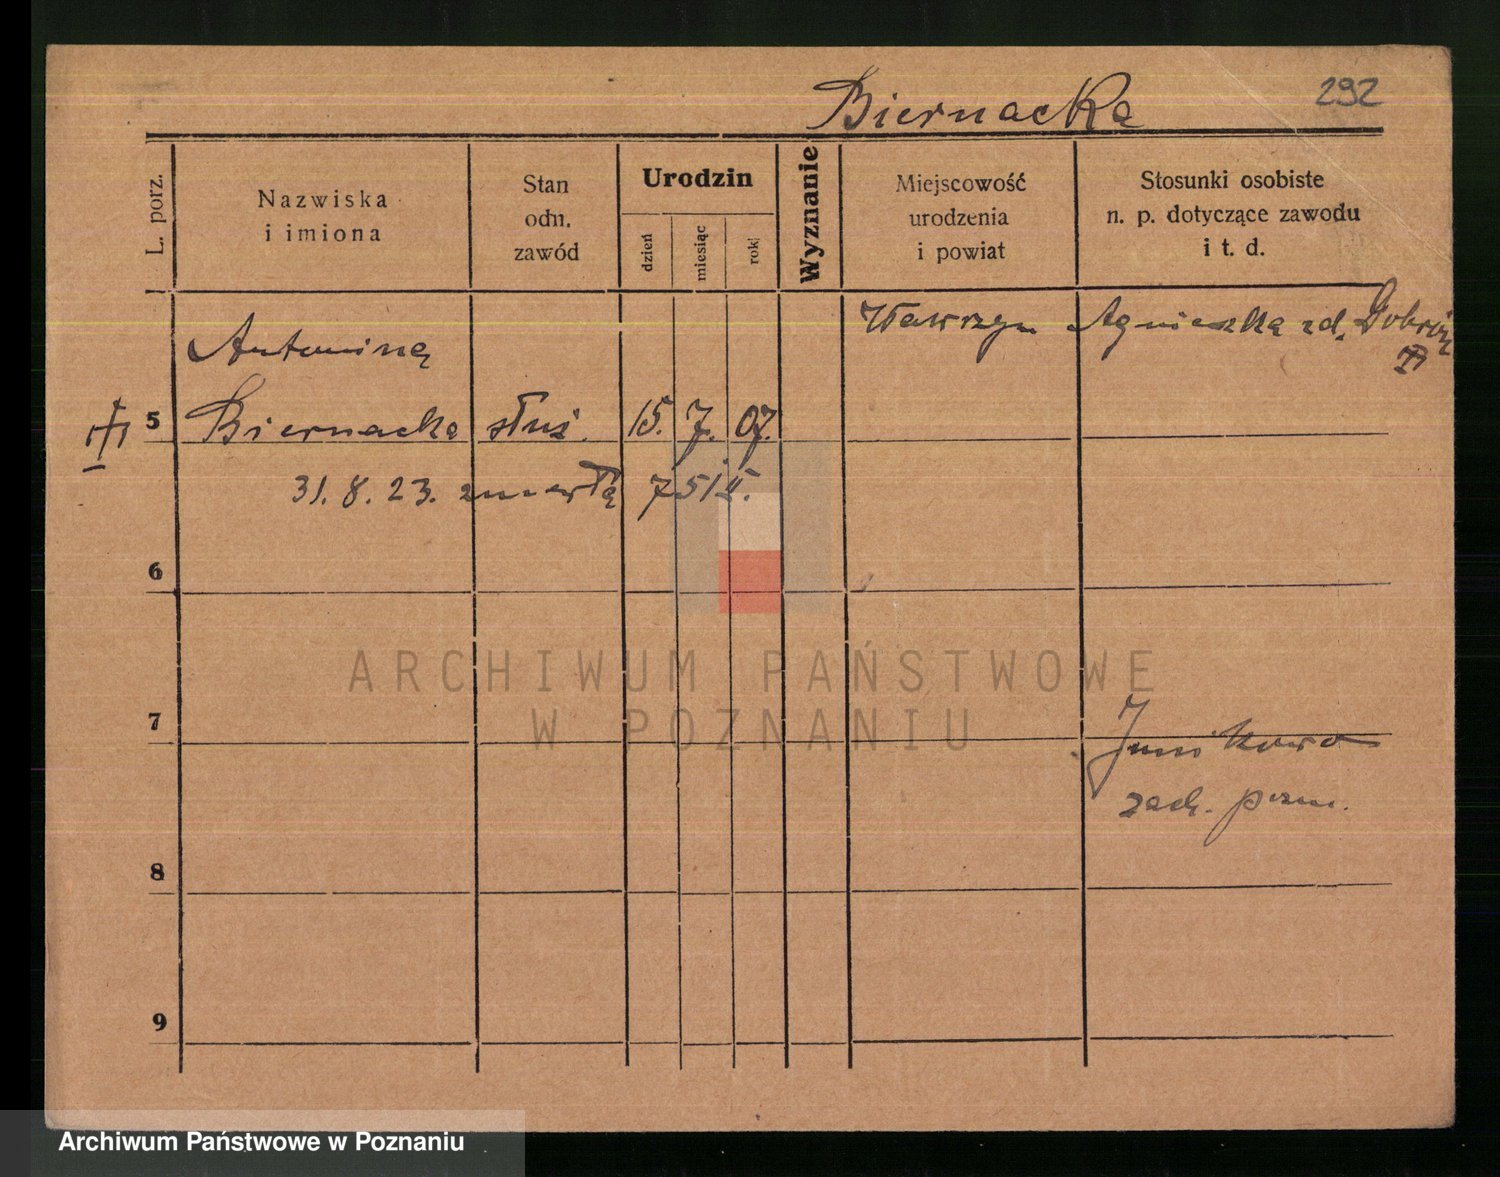 Biernacka
292
L. porz.
Nazwiska
i imiona
Stan
odn.
zawód
Urodzin
dzień
miesiąc
rok
Wyznanie
Miejscowość
urodzenia
i powiat
Stosunki osobiste
n. p. dotyczące zawodu
i t. d.
Wawrzyn Agnieszka zd.
Antonina
5 Biernacka służ. 15. 7. 07.
31. 8. 23. zmarła
6
ARCHIWUM PAŃSTWOWE
W POZNANIU
7
Junikowo
zach. pozn.
8
9
Archiwum Państwowe w Poznaniu